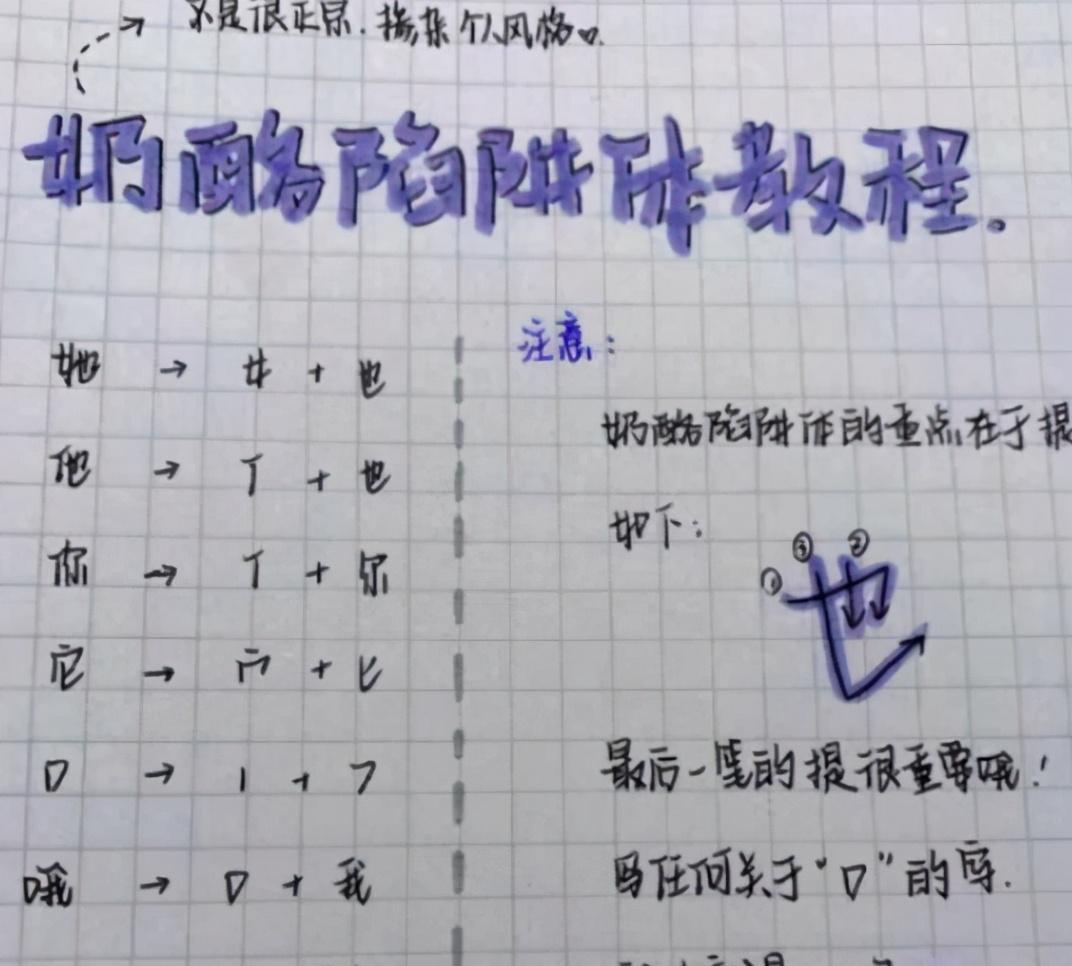 不是很正常.掺杂个人风格
奶酪陷阱体教程.
她 → 女 + 也
他 → 亻 + 也
你 → 亻 + 尔
它 → 宀 + 匕
口 → 丨 + ㇇
哦 → 口 + 我
注意:
奶酪陷阱体的重点在于提
如下:
① ③ ②
也
最后一笔的提很重要哦!
写任何关于“口”的字.